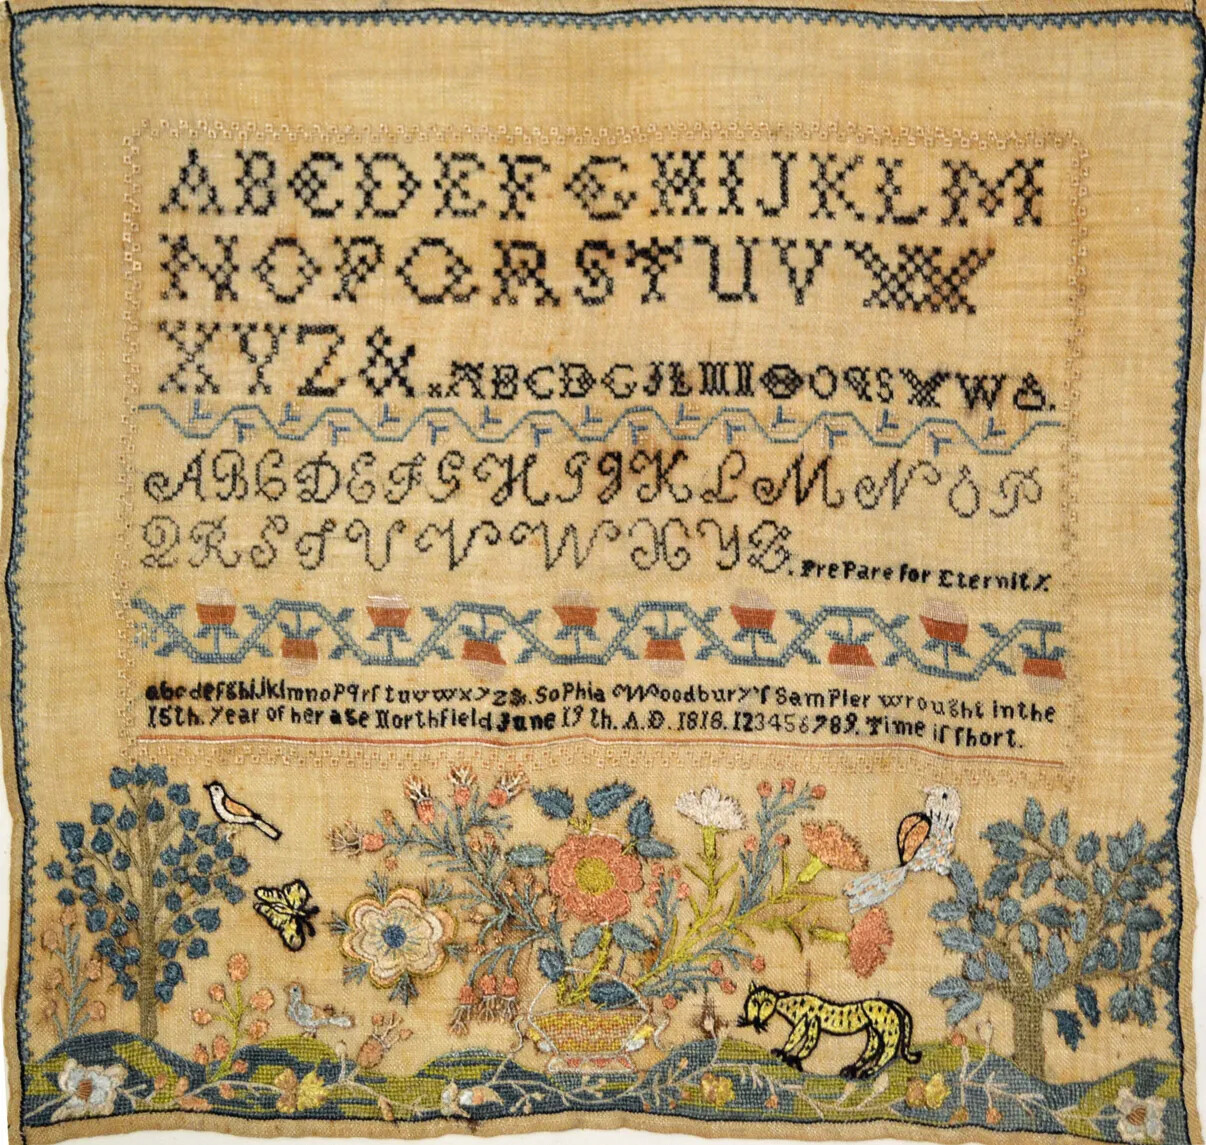 ABCDEFGHIJKLM
NOPQRSTUVW
XYZ&.ABCDGJLMIOQSXW&.
ABCDEFGHIJKLMNOP
QRSTUVWXYZ. PrePare for Eternity.
abcdefghijklmnoPqrſtuvwxyz&. SoPhia Woodbury'ſ SamPler wrought in the
15th. Year of her age Northfield June 19th. A.D. 1818. 123456789. Time iſ ſhort.